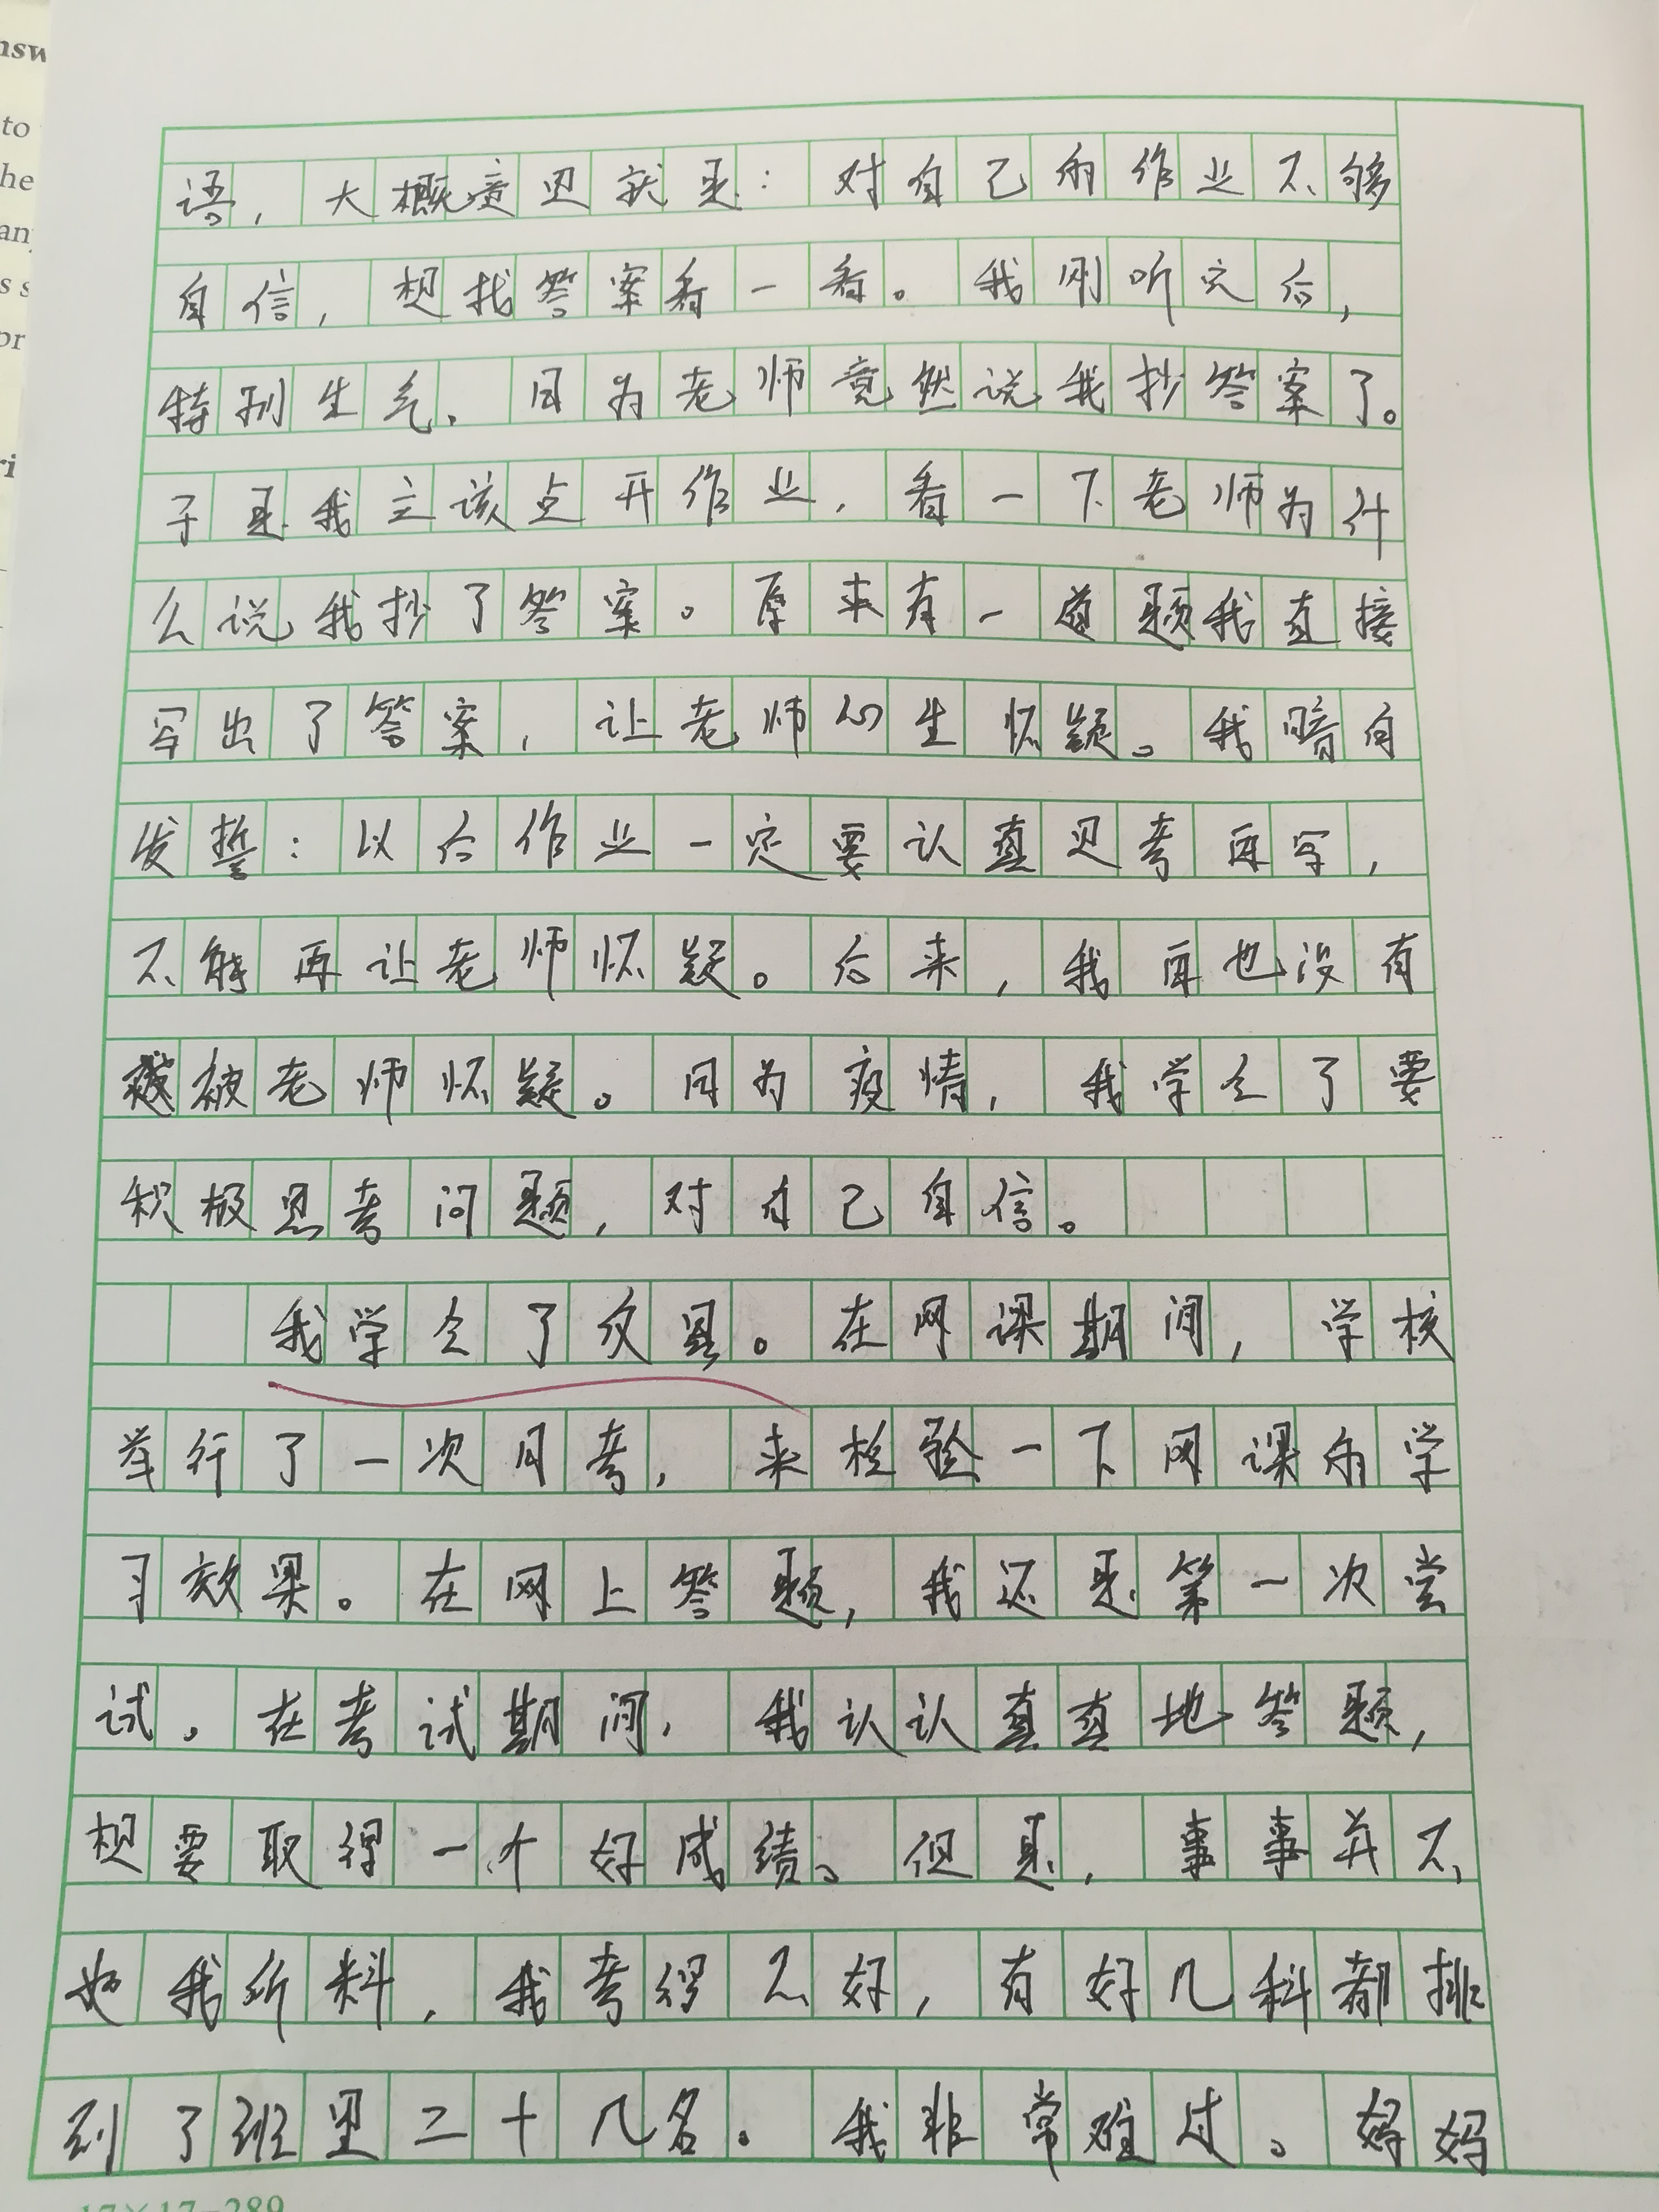 nsw
to
he
an
s s
or
ri
语，大概意思就是：对自己的作业不够
自信，想找答案看一看。我刚听完后，
特别生气，因为老师竟然说我抄答案了。
于是我立该点开作业，看一下老师为什
么说我抄了答案。原来有一道题我直接
写出了答案，让老师心生怀疑。我暗自
发誓：以后作业一定要认真思考再写，
不能再让老师怀疑。后来，我再也没有
被老师怀疑。因为疫情，我学会了要
积极思考问题，对自己自信。
我学会了反思。在网课期间，学校
举行了一次月考，来检验一下网课的学
习效果。在网上答题，我还是第一次尝
试。在考试期间，我认认真真地答题，
想要取得一个好成绩。但是，事事并不
如我所料，我考得不好，有好几科都排
到了班里二十几名。我非常难过。妈妈
17×17=289